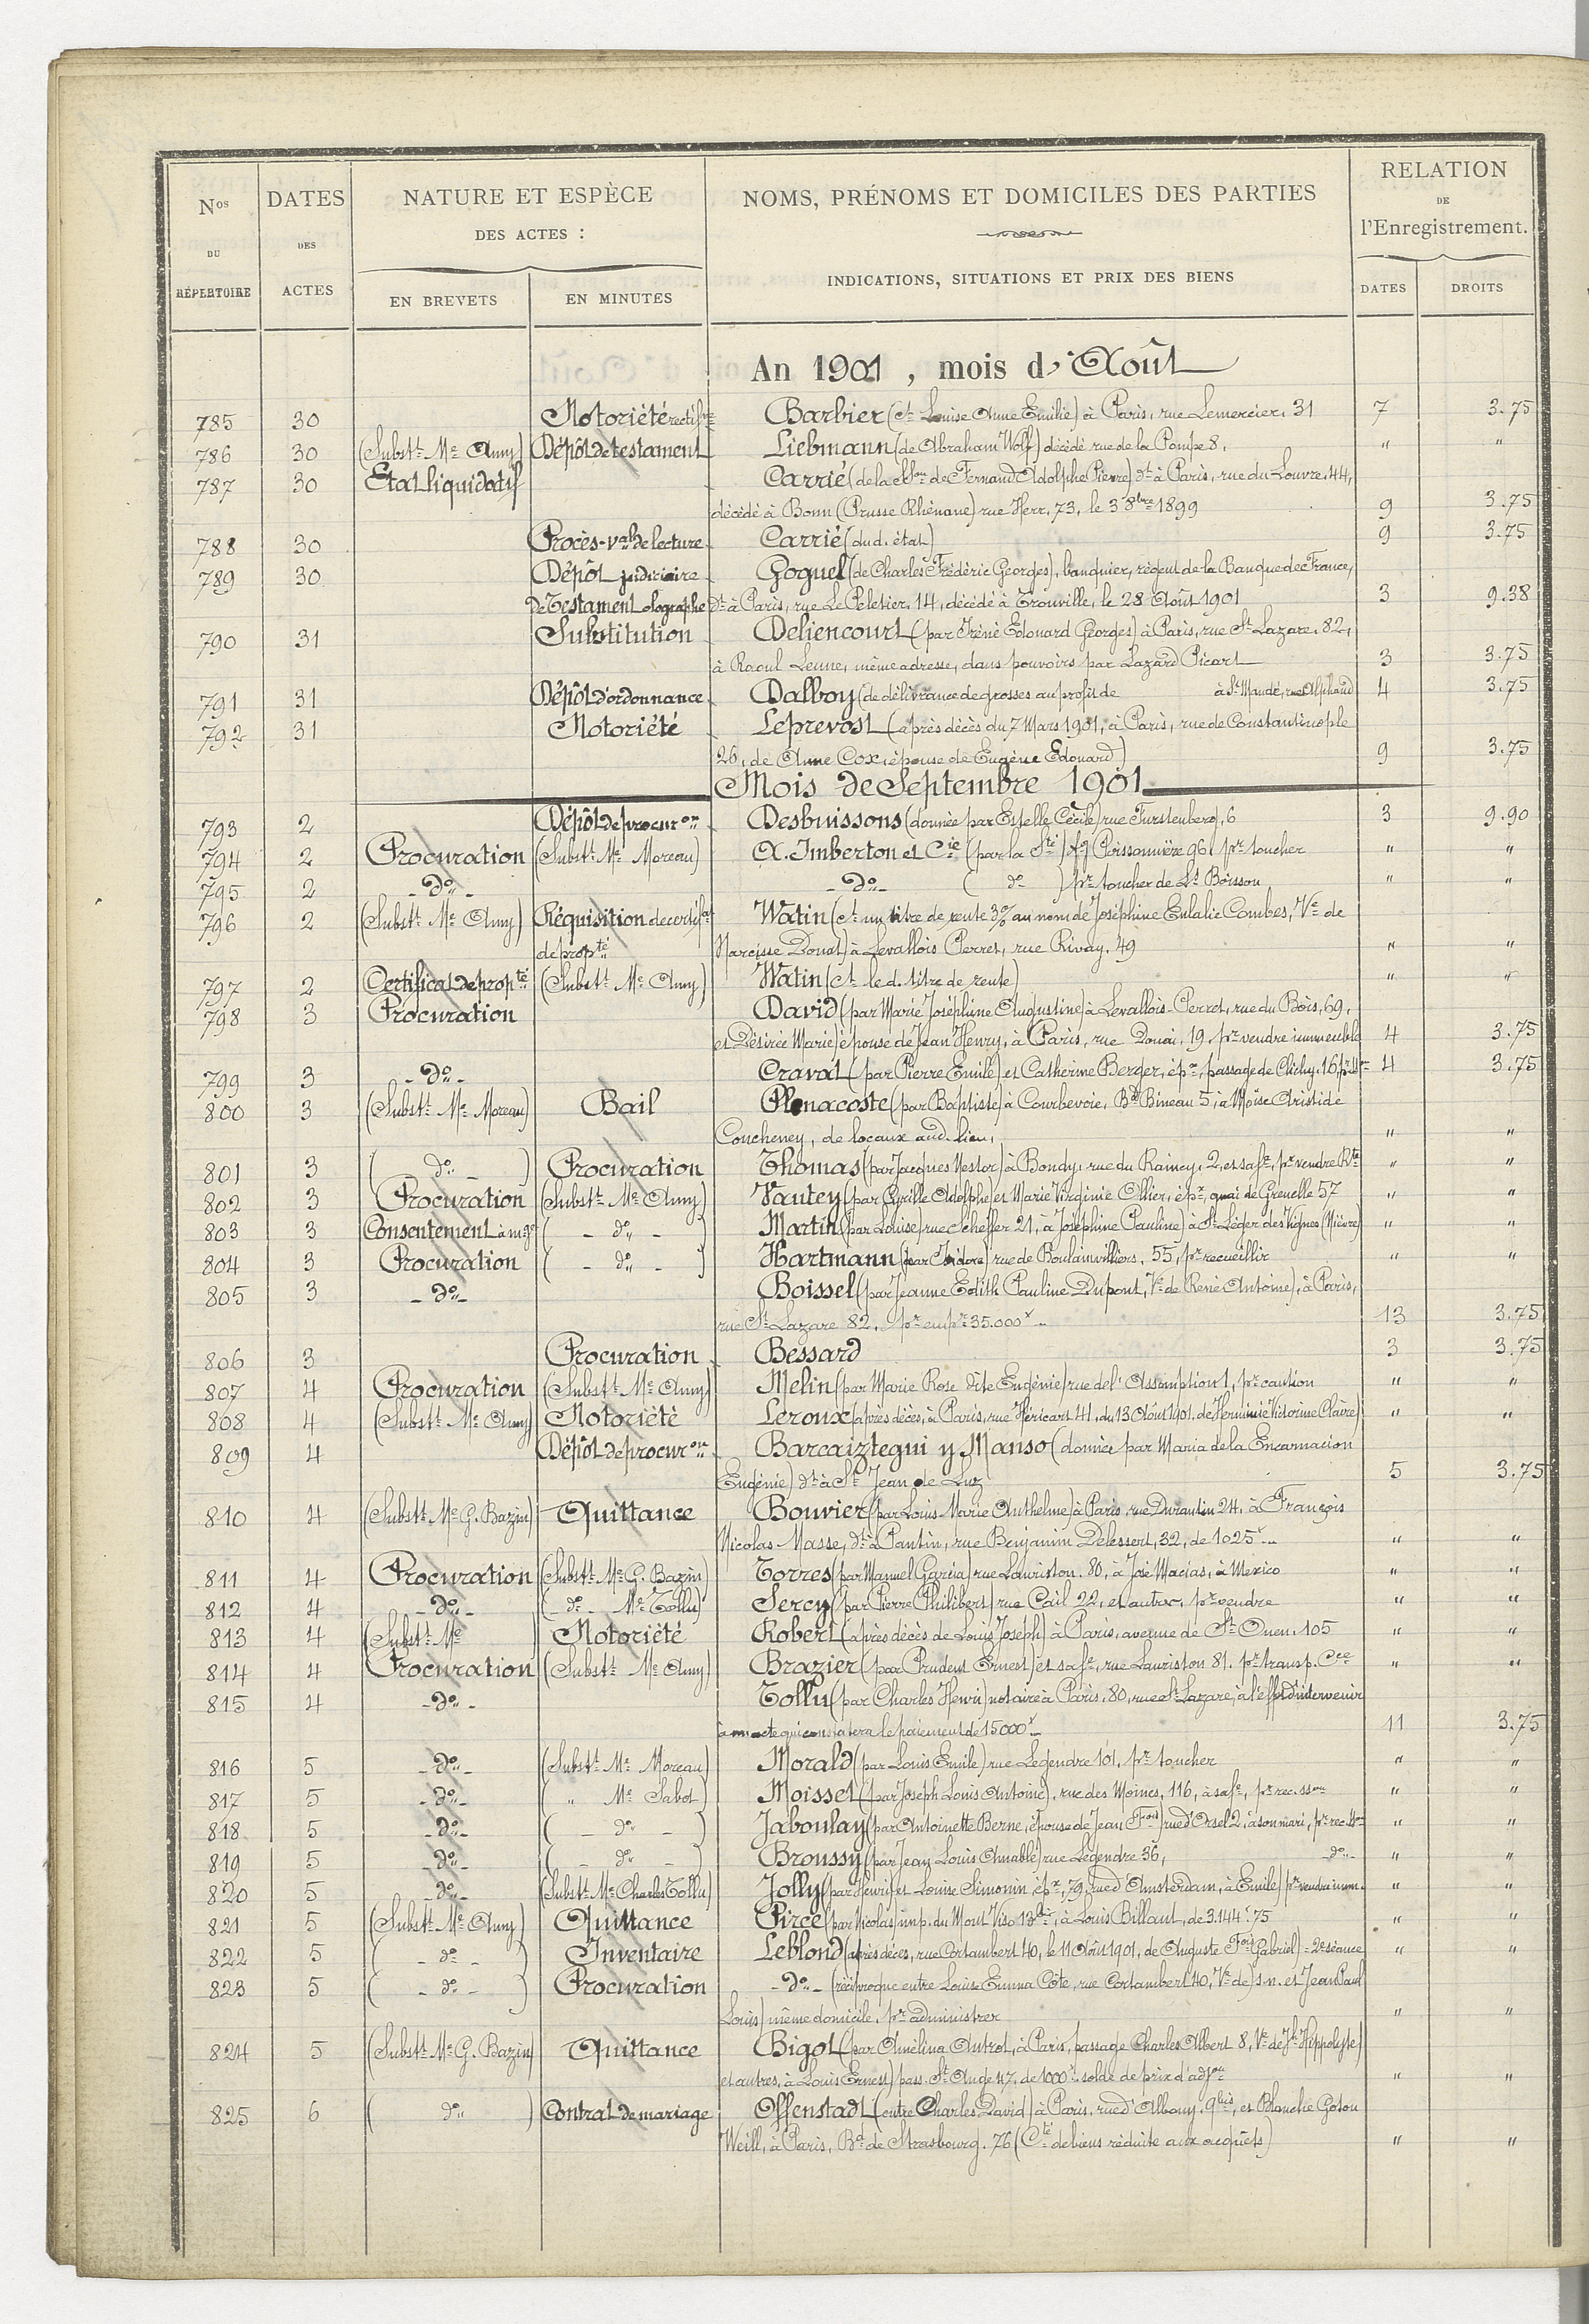 Nos DU RÉPERTOIRE | DATES DES ACTES | NATURE ET ESPÈCE DES ACTES : EN BREVETS | EN MINUTES | NOMS, PRÉNOMS ET DOMICILES DES PARTIES INDICATIONS, SITUATIONS ET PRIX DES BIENS | RELATION DE l'Enregistrement. DATES | DROITS
An 1901, mois d'Août
785 30 Notoriété rectifve Barbier (ct Louise Anne Emilie) à Paris, rue Lemercier, 31 7 3.75
786 30 (Substt Me Amy) Dépôt de testament Liebmann (de Abraham Wolf) décédé rue de la Pompe 8, " "
787 30 Etat liquidatif Carrié (de la son de Fernand Adolphe Pierre) dt à Paris, rue du Louvre, 44,
décédé à Bonn (Prusse Rhénane) rue Herr, 73, le 3 8bre 1899 9 3.75
788 30 Procès-val de lecture Carrié (dud. état) 9 3.75
789 30 Dépôt judiciaire Goguel (de Charles Frédéric Georges), banquier, régent de la Banque de France,
de Testament olographe dt à Paris, rue Le Peletier, 14, décédé à Trouville, le 28 Août 1901 3 9.38
790 31 Substitution Deliencourt (par Iréné Edouard Georges) à Paris, rue St Lazare, 82,
à Raoul Lenne, même adresse, dans pouvoirs par Lazard Picart 3 3.75
791 31 Dépôt d'ordonnance Dalboy (de délivrance de grosses au profit de à St Mandé, rue Alphand 4 3.75
792 31 Notoriété Leprevost (après décès du 7 Mars 1901, à Paris, rue de Constantinople
26, de Anne Cox, épouse de Eugène Edouard) 9 3.75
Mois de Septembre 1901
793 2 Dépôt de procuron Desbuissons (donnée par Estelle Cécile) rue Furstenberg, 6 3 9.90
794 2 Procuration (Substt Me Moreau) A. Imberton et Cie (par la Sté) fg Poissonnière 96, pr toucher " "
795 2 - do - - do - ( do ) pr toucher de Ls Boisson " "
796 2 (Substt Me Amy) Réquisition de certifat Watin (ct un titre de rente 3% au nom de Joséphine Eulalie Combes, Ve de
de propté Narcisse Donat) à Levallois Perret, rue Rivay, 49 " "
797 2 Certificat de propté (Substt Me Amy) Watin (ct le d. titre de rente) " "
798 3 Procuration David (par Marie Joséphine Augustine) à Levallois-Perret, rue du Bois, 69,
et Désirée Marie) épouse de Jean Henry, à Paris, rue Douai, 19, pr vendre immeuble 4 3.75
799 3 - do - Cravat (par Pierre Emile) et Catherine Berger, épse, passage de Clichy, 16, 4 3.75
800 3 (Substt Me Moreau) Bail Plenacoste (par Baptiste) à Courbevoie, Bd Bineau 5, à Moïse Aristide
Coucheney, de locaux aud. lieu, " "
801 3 ( do - ) Procuration Thomas (par Jacques Nestor) à Bondy, rue du Raincy, 2, et sa fe, pr vendre Rte " "
802 3 Procuration (Substt Me Amy) Vautey (par Cyrille Adolphe) et Marie Virginie Ollier, épx, quai de Grenelle 57 " "
803 3 Consentement à mge ( - do - ) Martin (par Louise) rue Scheffer 21, à Joséphine Pauline) à St Léger des Vignes (Nièvre) " "
804 3 Procuration ( - do - ) Hartmann (par Isidore) rue de Boulainvilliers, 55, pr recueillir " "
805 3 - do - Boissel (par Jeanne Edith Pauline Dupont, Ve de René Antoine), à Paris,
rue St Lazare 82, pr empr 35.000f 13 3.75
806 3 Procuration Bessard 3 3.75
807 4 Procuration (Substt Me Amy) Melin (par Marie Rose dite Eugénie) rue de l'Assomption 1, pr caution " "
808 4 (Substt Me Amy) Notoriété Leroux (après décès, à Paris, rue Héricart 41, du 13 Août 1901, de Herminie Victorine Claire) " "
809 4 Dépôt de procuron Barcaiztegui y Manso (donnée par Maria de la Encarnacion
Eugénie) dt à St Jean de Luz 5 3.75
810 4 (Substt Me G. Bazin) Quittance Bouvier (par Louis Marie Anthelme) à Paris, rue Durantin 24, à François
Nicolas Masse, dt à Pantin, rue Benjamin Delessert, 32, de 1025f " "
811 4 Procuration (Substt Me G. Bazin) Torres (par Manuel Garcia) rue Lauriston, 80, à José Macias, à Mexico " "
812 4 - do - (- do - Me Tollu) Sercy (par Pierre Philibert) rue Cail 22, et autres, pr vendre " "
813 4 (Substt Me Notoriété Robert (après décès de Louis Joseph) à Paris, avenue de St Ouen, 105 " "
814 4 Procuration (Substt Me Amy) Brazier (par Prudent Ernest) et sa fe, rue Lauriston 81, pr transp. Cce " "
815 4 - do - Tollu (par Charles Henri) notaire à Paris, 80, rue St Lazare, à l'effet d'intervenir
à un acte qui constatera le paiement de 15000f 11 3.75
816 5 - do - (Substt Me Moreau) Morald (par Louis Emile) rue Legendre 101, pr toucher " "
817 5 - do - ( " Me Sabot) Moisset (par Joseph Louis Antoine), rue des Moines, 116, à sa fe, pr rec. sson " "
818 5 - do - ( - do - ) Jaboulay (par Antoinette Berne, épouse de Jean Fois) rue d'Orsel 2, à son mari, pr rec. sson " "
819 5 - do - ( - do - ) Broussy (par Jean Louis Amable) rue Legendre 36, - do - " "
820 5 - do - (Substt Me Charles Tollu) Jolly (par Henri) et Louise Simonin, épx, 79, rue d'Amsterdam, à Emile) pr vendre imm. " "
821 5 (Substt Me Amy) Quittance Pirce (par Nicolas) imp. du Mont Viso 13bis, à Louis Billaut, de 3.144f75 " "
822 5 ( - do - ) Inventaire Leblond (après décès, rue Cortambert 40, le 11 Août 1901, de Auguste Fois Gabriel) = 2e séance " "
823 5 ( - do - ) Procuration - do - (réciproque entre Louise Emma Côte, rue Cortambert 40, Ve de) s. n. et Jean Paul
Louis) même domicile, pr administrer " "
824 5 (Substt Me G. Bazin) Quittance Bigot (par Amélina Autrot, à Paris, passage Charles Albert 8, Ve de Jh Hippolyte)
et autres, à Louis Ernest) pass. St Ange 47, de 1000f solde de prix d'adjon " "
825 6 ( do ) Contrat de mariage Offenstadt (entre Charles David) à Paris, rue d'Albouy, 9bis, et Blanche Goton
Weill, à Paris, Bd de Strasbourg, 76 (Cté de biens réduite aux acquêts) " "